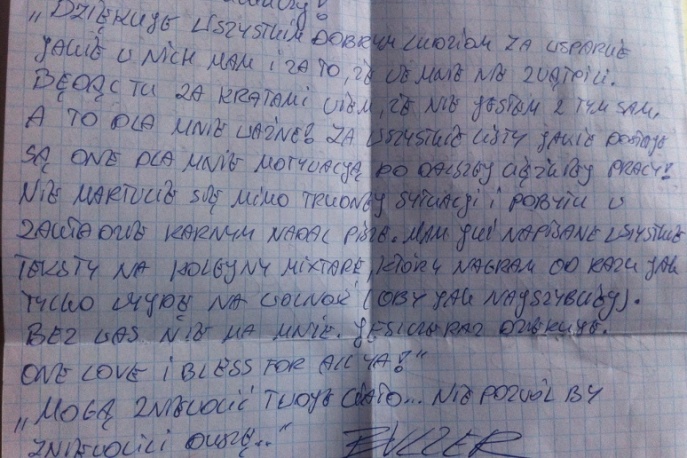 „DZIĘKUJĘ WSZYSTKIM DOBRYM LUDZIOM ZA WSPARCIE
JAKIE W NICH MAM I ZA TO, ŻE WE MNIE NIE ZWĄTPILI.
BĘDĄC TU ZA KRATAMI WIEM, ŻE NIE JESTEM Z TYM SAM,
A TO DLA MNIE WAŻNE! ZA WSZYSTKIE LISTY JAKIE DOSTAJĘ
SĄ ONE DLA MNIE MOTYWACJĄ DO DALSZEJ CIĘŻKIEJ PRACY!
NIE MARTWCIE SIĘ MIMO TRUDNEJ SYTUACJI I POBYTU W
ZAKŁADZIE KARNYM NADAL PISZĘ. MAM JUŻ NAPISANE WSZYSTKIE
TEKSTY NA KOLEJNY MIXTAPE, KTÓRY NAGRAM OD RAZU JAK
TYLKO WYJDĘ NA WOLNOŚĆ (OBY JAK NAJSZYBCIEJ).
BEZ WAS NIE MA MNIE. JESZCZE RAZ DZIĘKUJĘ.
ONE LOVE I BLESS FOR ALL YA!"
„MOGĄ ZNIEWOLIĆ TWOJE CIAŁO... NIE POZWÓL BY
ZNIEWOLILI DUSZĘ..."